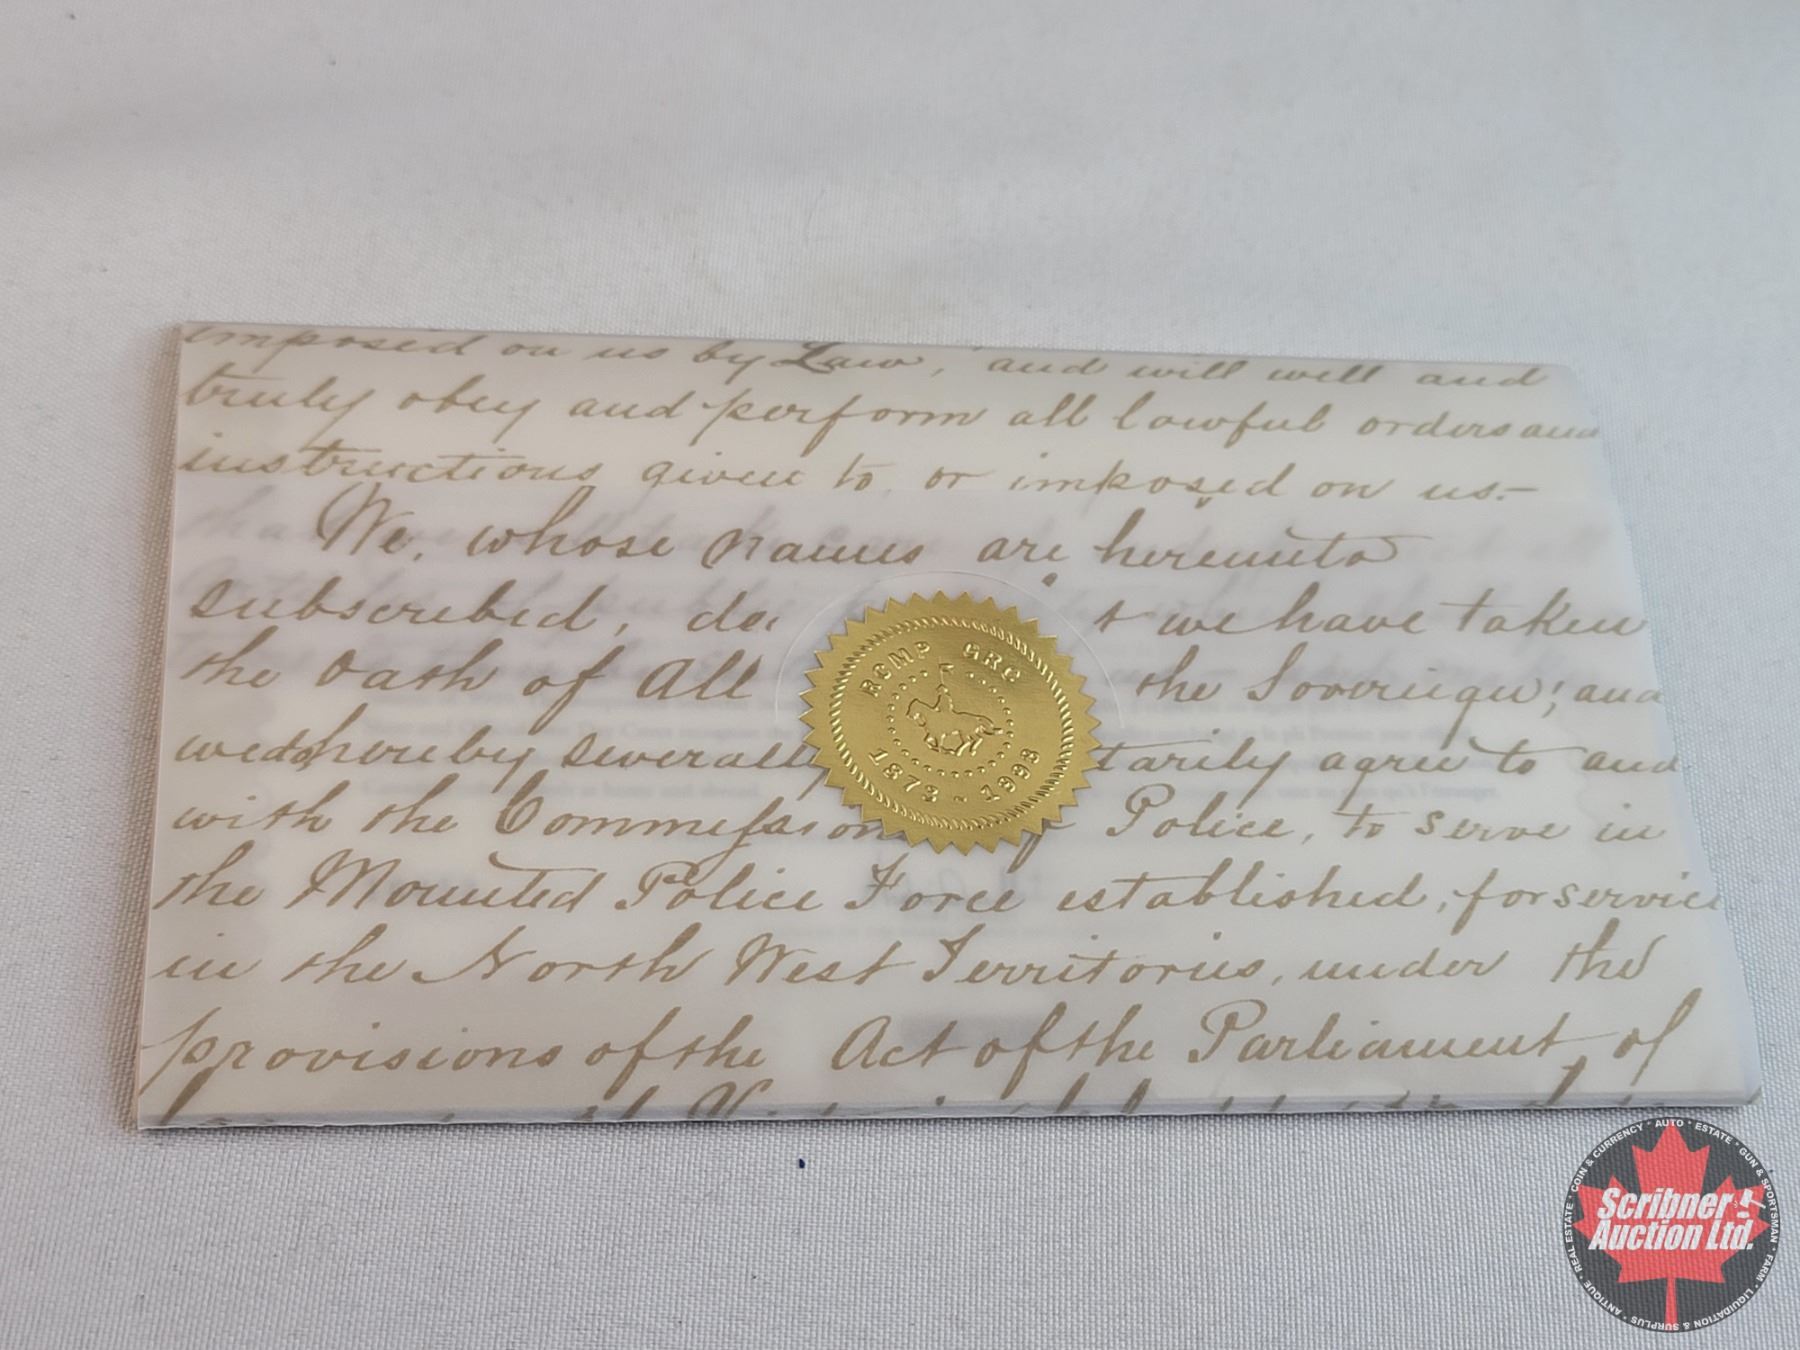 imposed on us by Law, and will well and
truly obey and perform all lawful orders and
instructions given to, or imposed on us.—
We, whose names are hereunto
subscribed, de t we have taken
the Oath of All the Sovereign; and
we do hereby severally tarily agree to and
with the Commissioner of Police, to serve in
the Mounted Police Force established, for service
in the North West Territories, under the
provisions of the Act of the Parliament of
RCMP GRC
1873 - 1998
Scribner
Auction Ltd.
COIN & CURRENCY * AUTO * ESTATE * GUN & SPORTSMAN * FARM * LIQUIDATION & SURPLUS * ANTIQUE * REAL ESTATE *